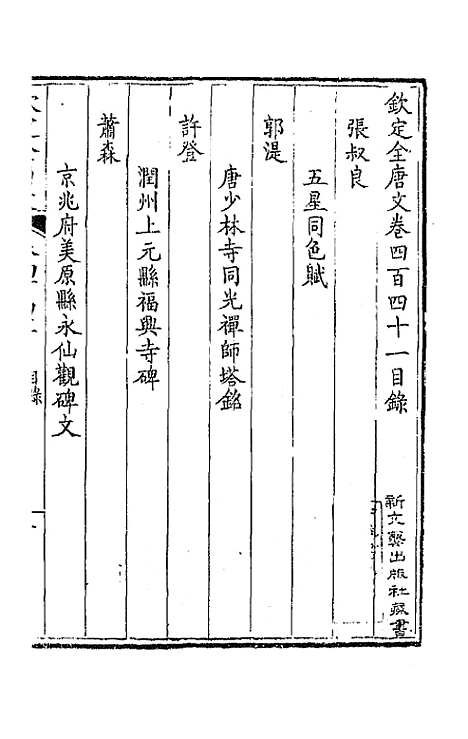 欽定全唐文卷四百四十一目錄
張叔良
五星同色賦
郭湜
唐少林寺同光禪師塔銘
許登
潤州上元縣福興寺碑
蕭森
京兆府美原縣永仙觀碑文
目錄
新文藝出版社藏書